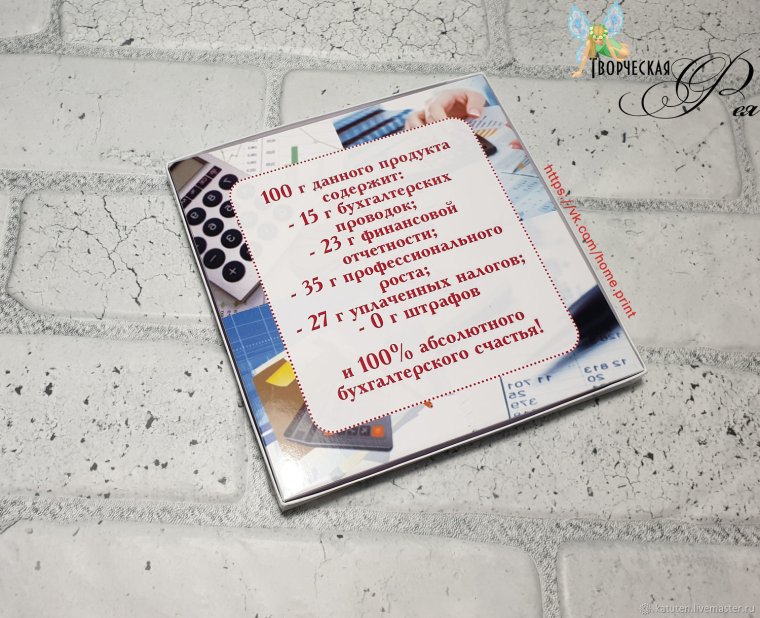 Творческая
Фея
https://vk.com/home.print
100 г данного продукта
содержит:
- 15 г бухгалтерских
проводок;
- 23 г финансовой
отчетности;
- 35 г профессионального
роста;
- 27 г уплаченных налогов;
- 0 г штрафов
и 100% абсолютного
бухгалтерского счастья!
katuten.livemaster.ru